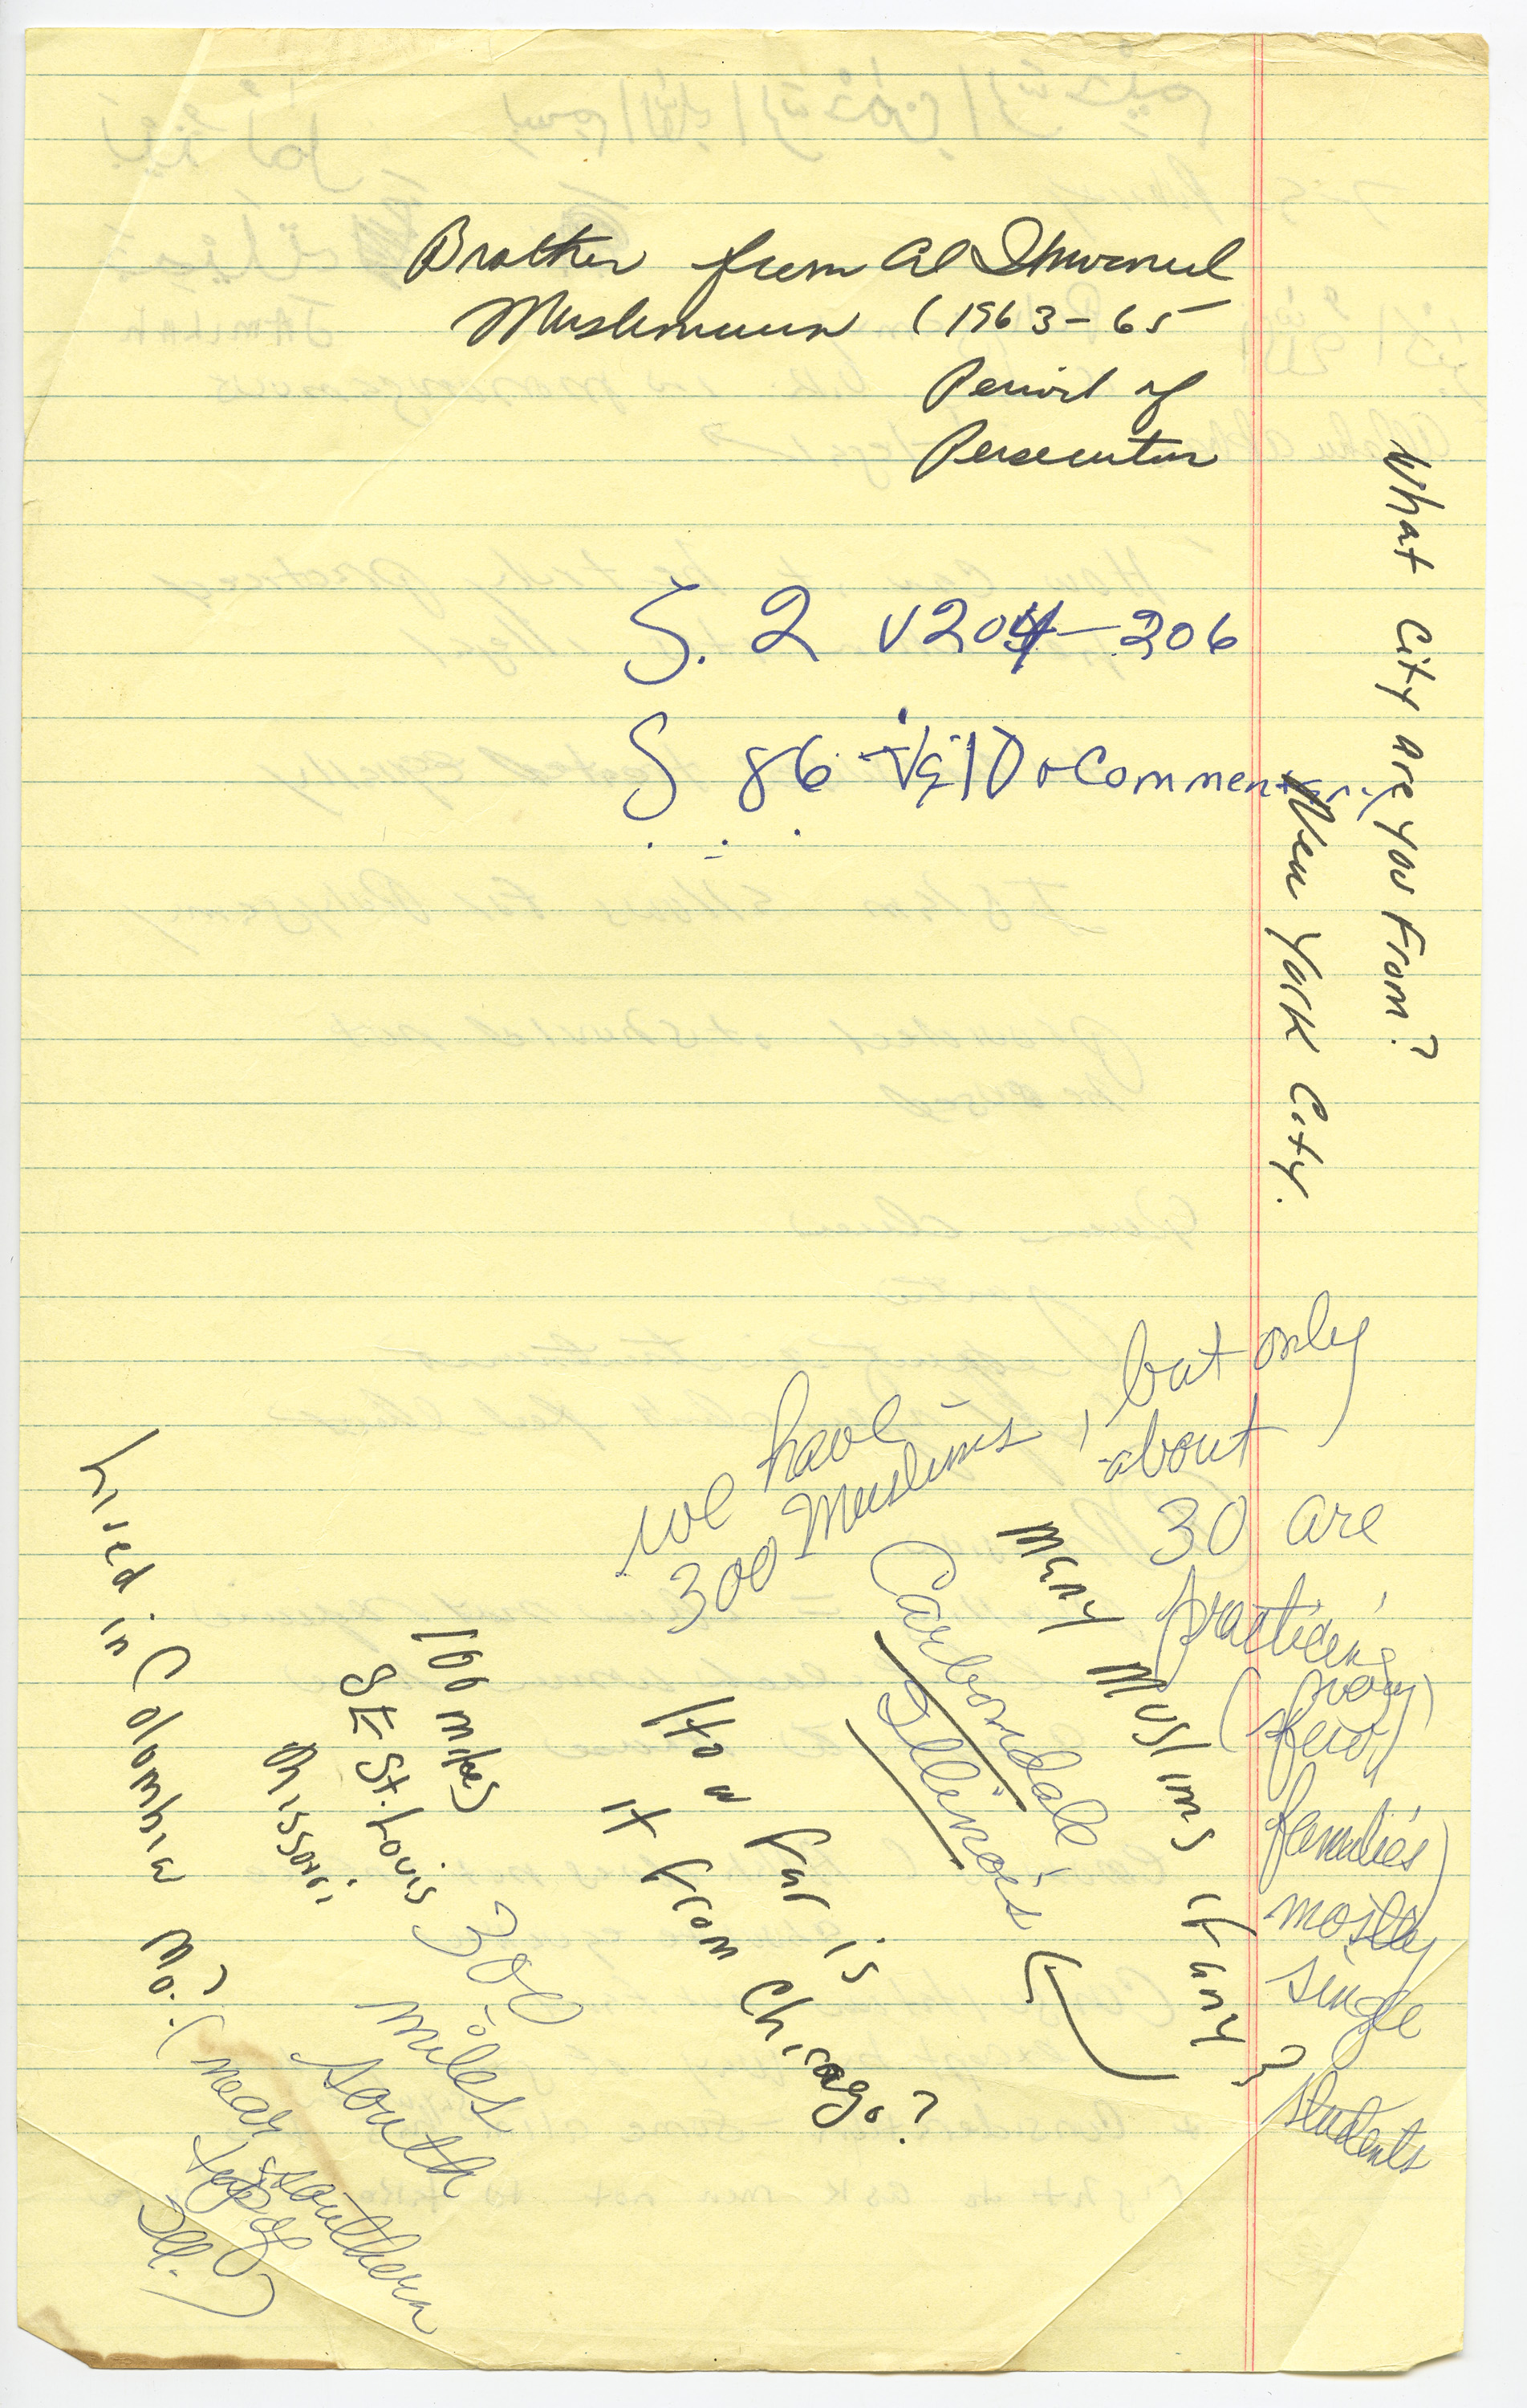 Brother from Al Ikhwanul
Muslimuun (1963-65
Period of
Persecution
S. 2 v204-206
S 86 10 + Commentary
What City are you from?
New York City.
Many Muslims if any?
we have
300 Muslims, but only
about
30 are
practicing
(
few)
families)
mostly
single
students
Carbondale
Illinois
How far is
it from Chicago?
300
miles
south
100 miles
SE St. Louis
Missouri
Lived in Colombia Mo.?
(near southern
tip of
Ill.)